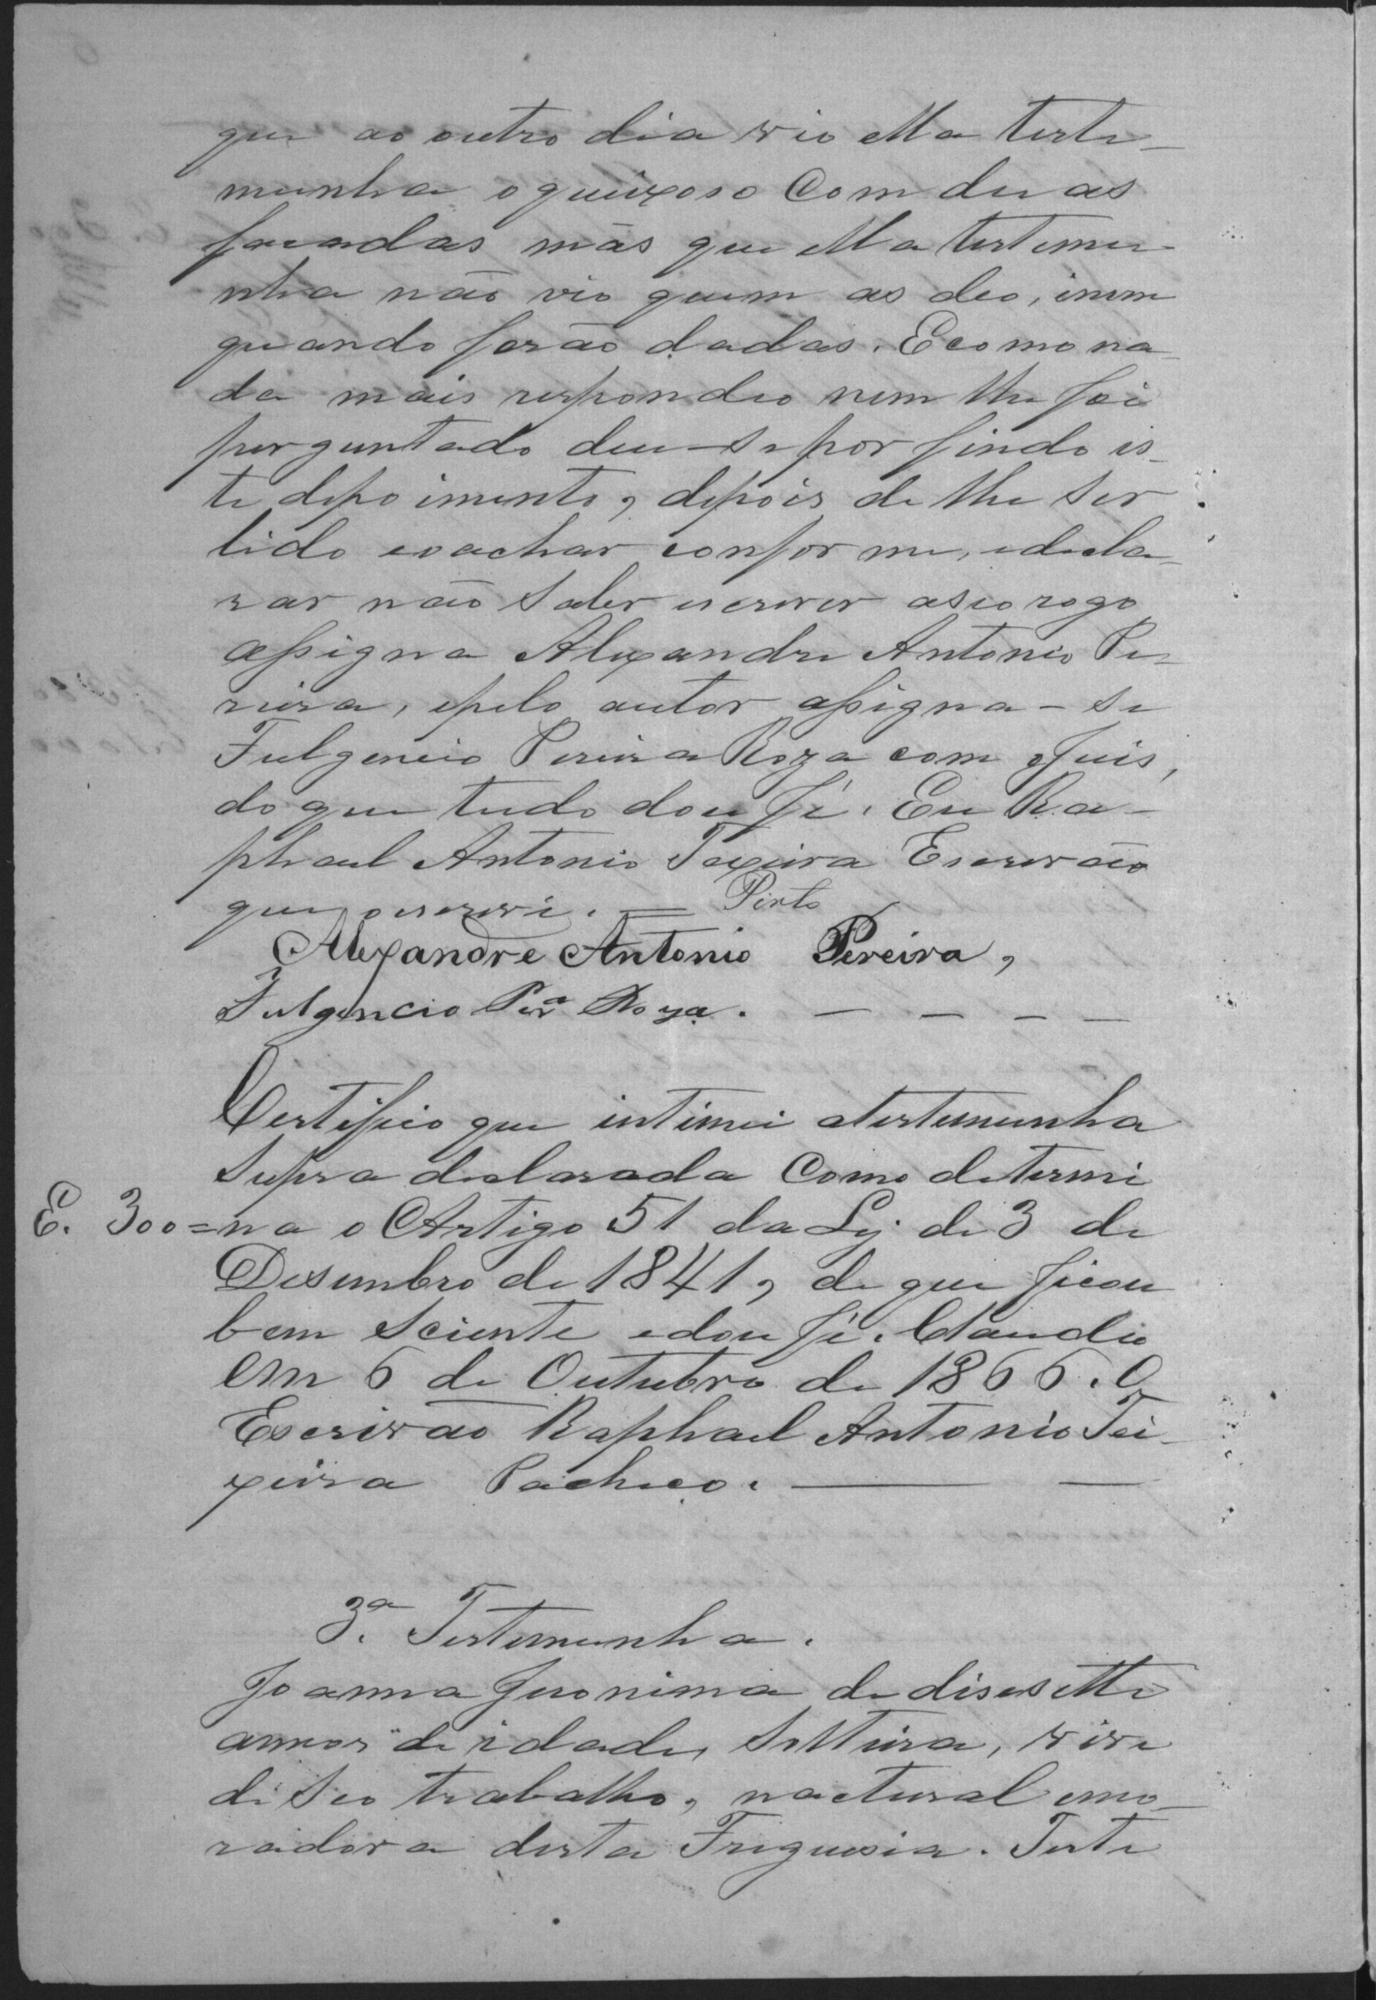 que ao outro dia vio ella teste-
munha o queixoso Com duas
facadas mas que ella testemu-
nha não vio quem as deo, inem
quando forão dadas. E como na
da mais respondeo nem lhe foi
perguntado deu-se por findo is-
te depoimento, depois de lhe ser
lido e o achar conforme, edecla-
rar não saber escrever aseo rogo
assigna Alexandre Antonio Pe-
reira, epelo autor assigna-se
Fulgencio Pereira Roza com oJuis,
do que tudo dou fé. Eu Ra-
phael Antonio Teixeira Escrivão
que o escrevi. — Pinto
Alexandre Antonio Pereira,
Fulgencio Per.ª Roza. — — — —
Certifico que intimei atestemunha
supra declarada Como determi
E. 300 = na o Artigo 51 da Ley de 3 de
Desembro de 1841, de que ficou
bem Sciente edou fé. Claudio
em 6 de Outubro de 1866. O
Escrivão Raphael Antonio Tei-
xeira Pacheco. — —
3.ª Testemunha.
Joanna Jeronima de disesette
annos de idade, Solteira, vive
de Seo trabalho, nactural emo-
radora desta Freguesia. Teste